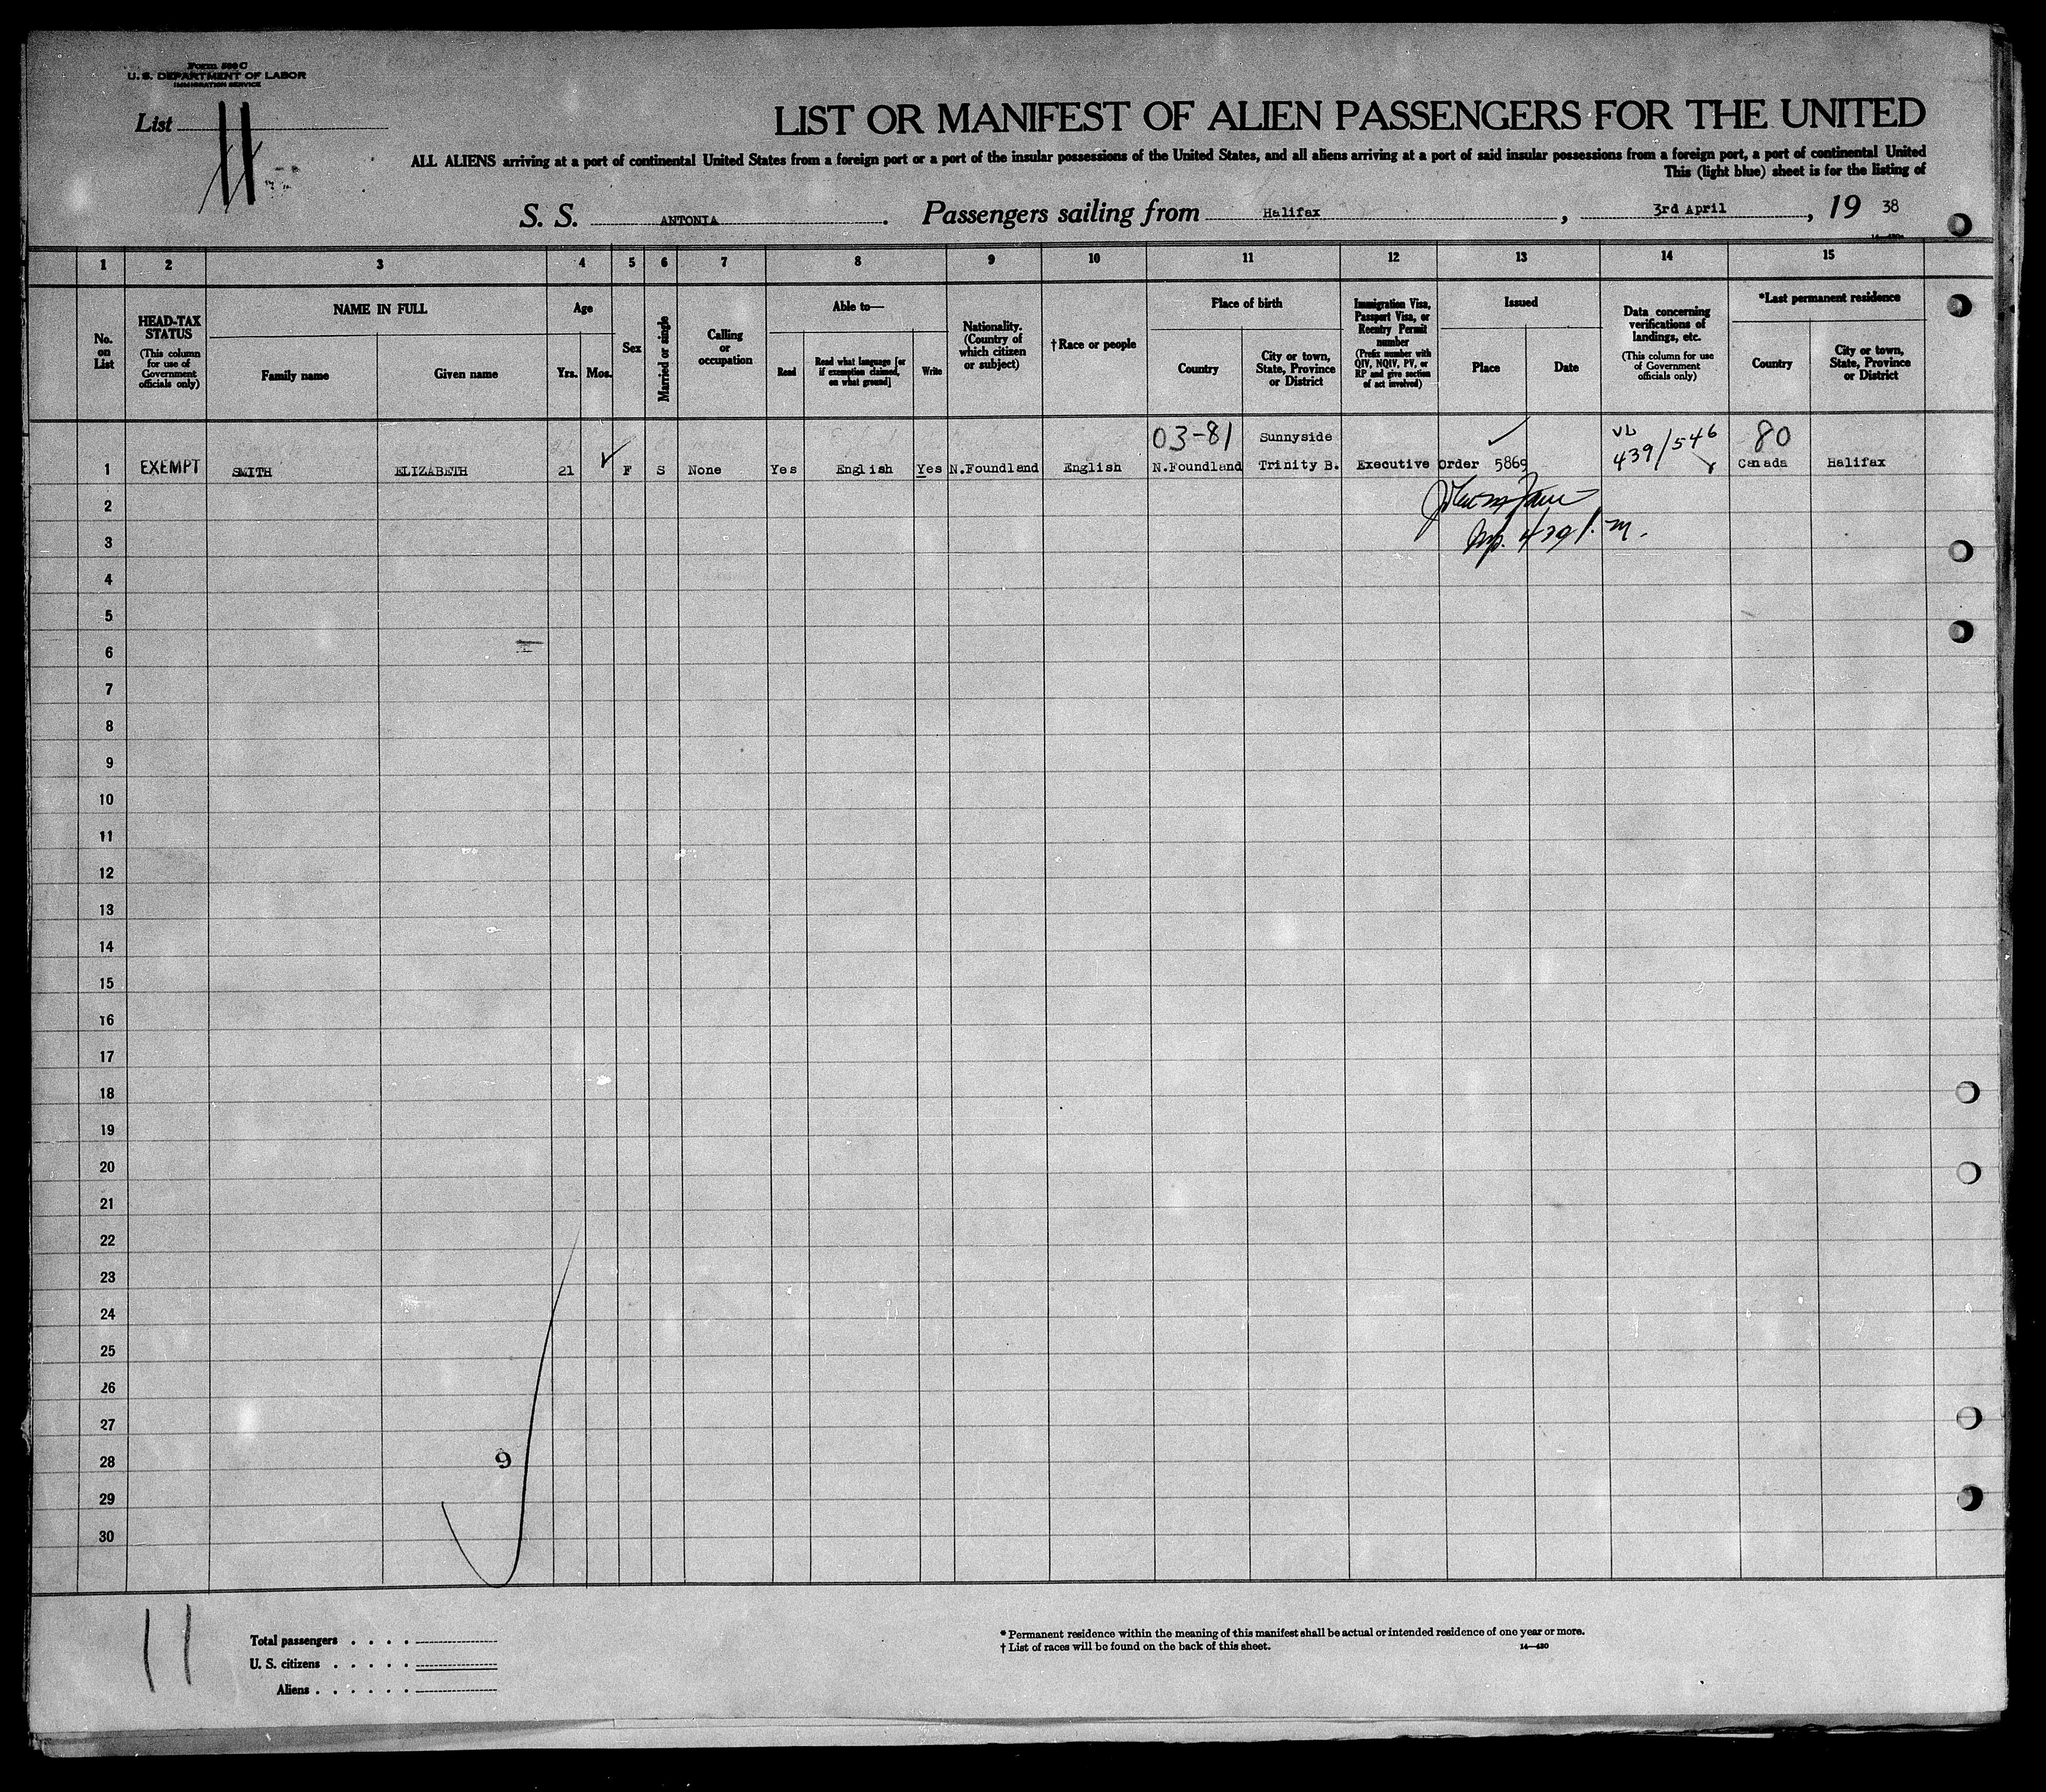 Form 500 C
U. S. DEPARTMENT OF LABOR
IMMIGRATION SERVICE
List 11
LIST OR MANIFEST OF ALIEN PASSENGERS FOR THE UNITED
ALL ALIENS arriving at a port of continental United States from a foreign port or a port of the insular possessions of the United States, and all aliens arriving at a port of said insular possessions from a foreign port, a port of continental United
This (light blue) sheet is for the listing of
S. S. ANTONIA. Passengers sailing from Halifax, 3rd April, 19 38
1 2 3 4 5 6 7 8 9 10 11 12 13 14 15
No. on List
HEAD-TAX STATUS
(This column for use of Government officials only)
NAME IN FULL
Family name
Given name
Age
Yrs.
Mos.
Sex
Married or single
Calling or occupation
Able to—
Read
Read what language [or if exemption claimed, on what ground]
Write
Nationality. (Country of which citizen or subject)
†Race or people
Place of birth
Country
City or town, State, Province or District
Immigration Visa, Passport Visa, or Reentry Permit number
(Prefix number with QIV, NQIV, PV, or RP and give section of act involved)
Issued
Place
Date
Data concerning verifications of landings, etc.
(This column for use of Government officials only)
*Last permanent residence
Country
City or town, State, Province or District
03-81 Sunnyside 439/546 80
1 EXEMPT SMITH ELIZABETH 21 F S None Yes English Yes N.Foundland English N.Foundland Trinity B. Executive Order 5869 Canada Halifax
2
3
4
5
6
7
8
9
10
11
12
13
14
15
16
17
18
19
20
21
22
23
24
25
26
27
28
9
29
30
11
Total passengers
U. S. citizens
Aliens
* Permanent residence within the meaning of this manifest shall be actual or intended residence of one year or more.
† List of races will be found on the back of this sheet.
14—430